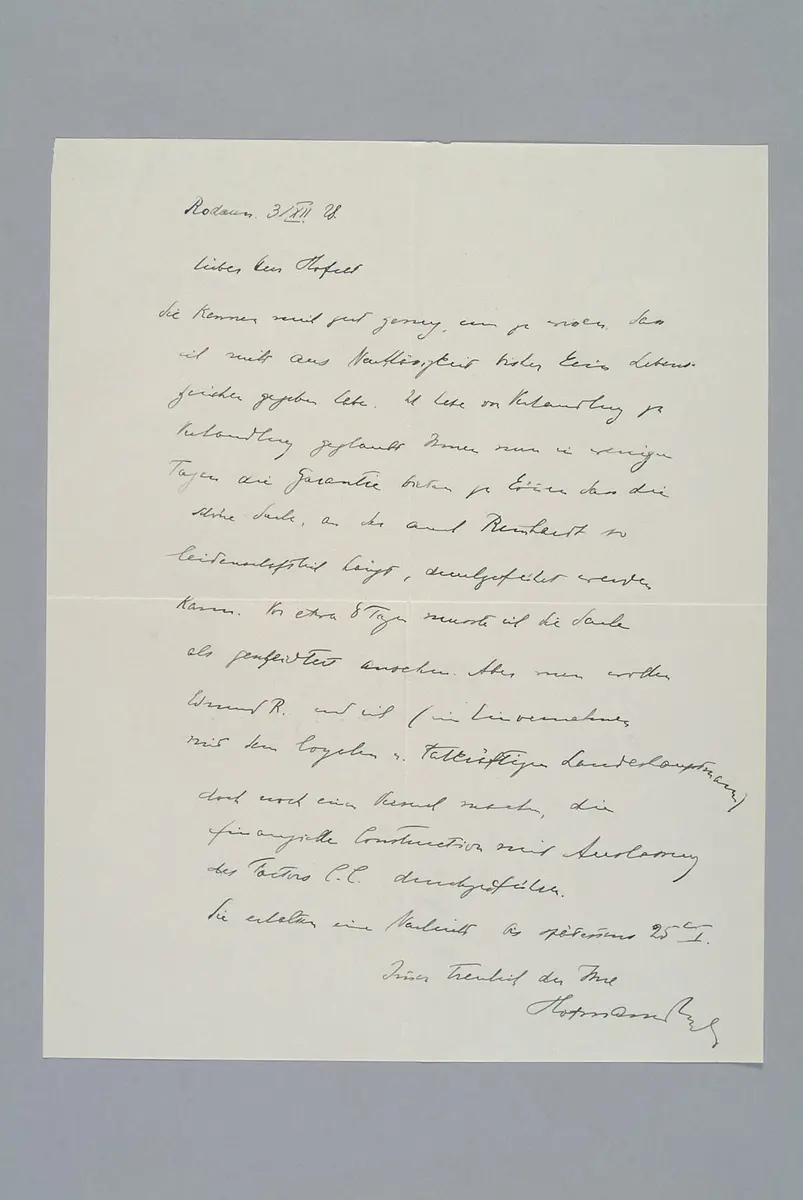 Rodaun. 3/XII 28.
lieber Herr Hofrat
Sie kennen mich gut genug, um zu wissen dass
ich nicht aus Nachlässigkeit bisher kein Lebens-
zeichen gegeben habe. Ich habe von Verhandlung zu
Verhandlung geglaubt Ihnen nun in wenigen
Tagen die Garantie bieten zu können dass die
schöne Sache, an der auch Reinhardt so
leidenschaftlich hängt, durchgeführt werden
kann. Vor etwa 8 Tagen musste ich die Sache
als gescheitert ansehen. Aber nun wollen
Edmund R. und ich (im Einvernehmen
mit dem loyalen u. tatkräftigen Landeshauptmann)
doch noch einen Versuch machen, die
finanzielle Construction mit Auslassung
des Factors C.C. durchzuführen.
Sie erhalten eine Nachricht bis spätestens 25 I.
Immer freundlich der Ihre
Hofmannsthal